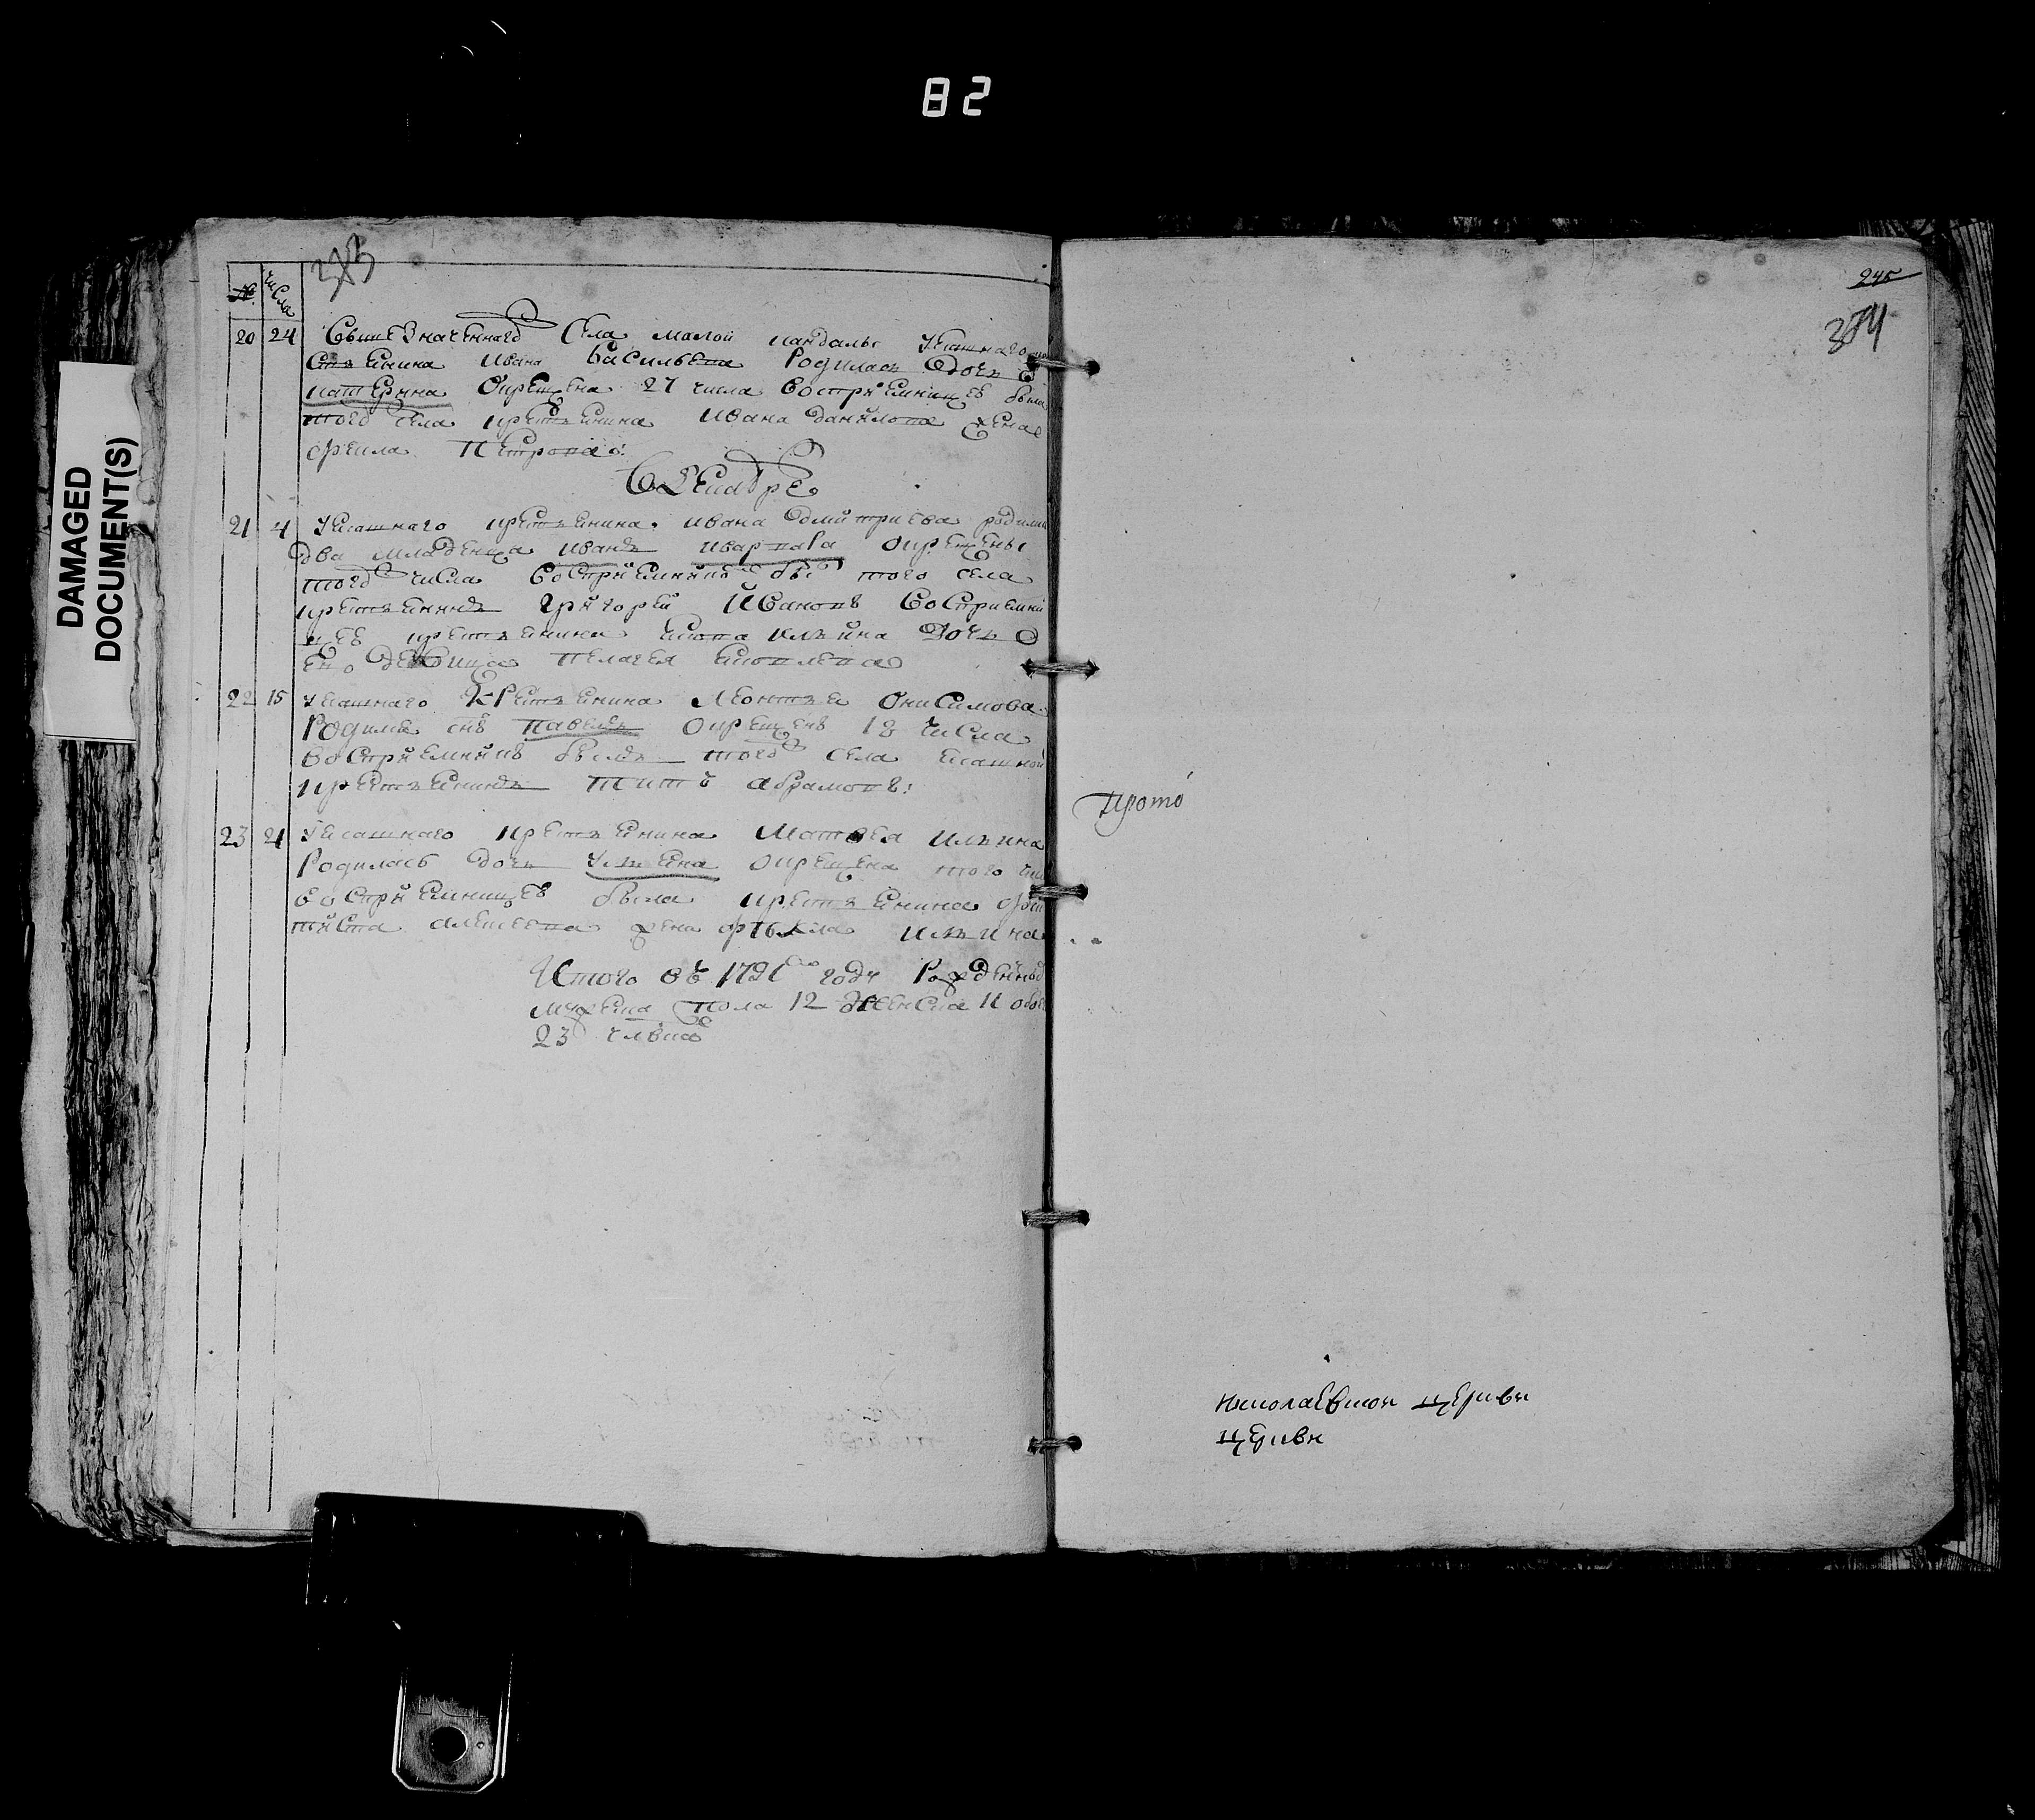 82
DAMAGED
DOCUMENT(S)
383
№ числа
20 24 Вышезначеннаго села малой
Ивана Васильева родилась дочь
катерина окрещена 27 числа восприемницею была
того села крестьянина Ивана данилова жена
фекла Петрова:
В декабре
21 4 У ясашнаго крестьянина ивана дмитриева родили
два младенца иванъ и варвара окрещены
того числа восприемникъ был того села
крестьянинъ григорей Ивановъ восприемни
цею крестьянина ильина дочь
ево девица пелагея
22 15 У ясашнаго крестьянина Леонтья Онисимова
родился снъ павелъ окрещенъ 18 числа
восприемникъ былъ того села ясашной
крестьянинъ титъ абрамовъ:
23 21 У ясашнаго крестьянина Матвея ильина
родилась дочь ульяна окрещена того
восприемницею была крестьянина
алексеева жена фекла ильина
Итого въ 1791 году рожденныхъ
мужеска пола 12 женска 11 обое
23 члвка
245
384
Прото
николаевской церкви
церкви